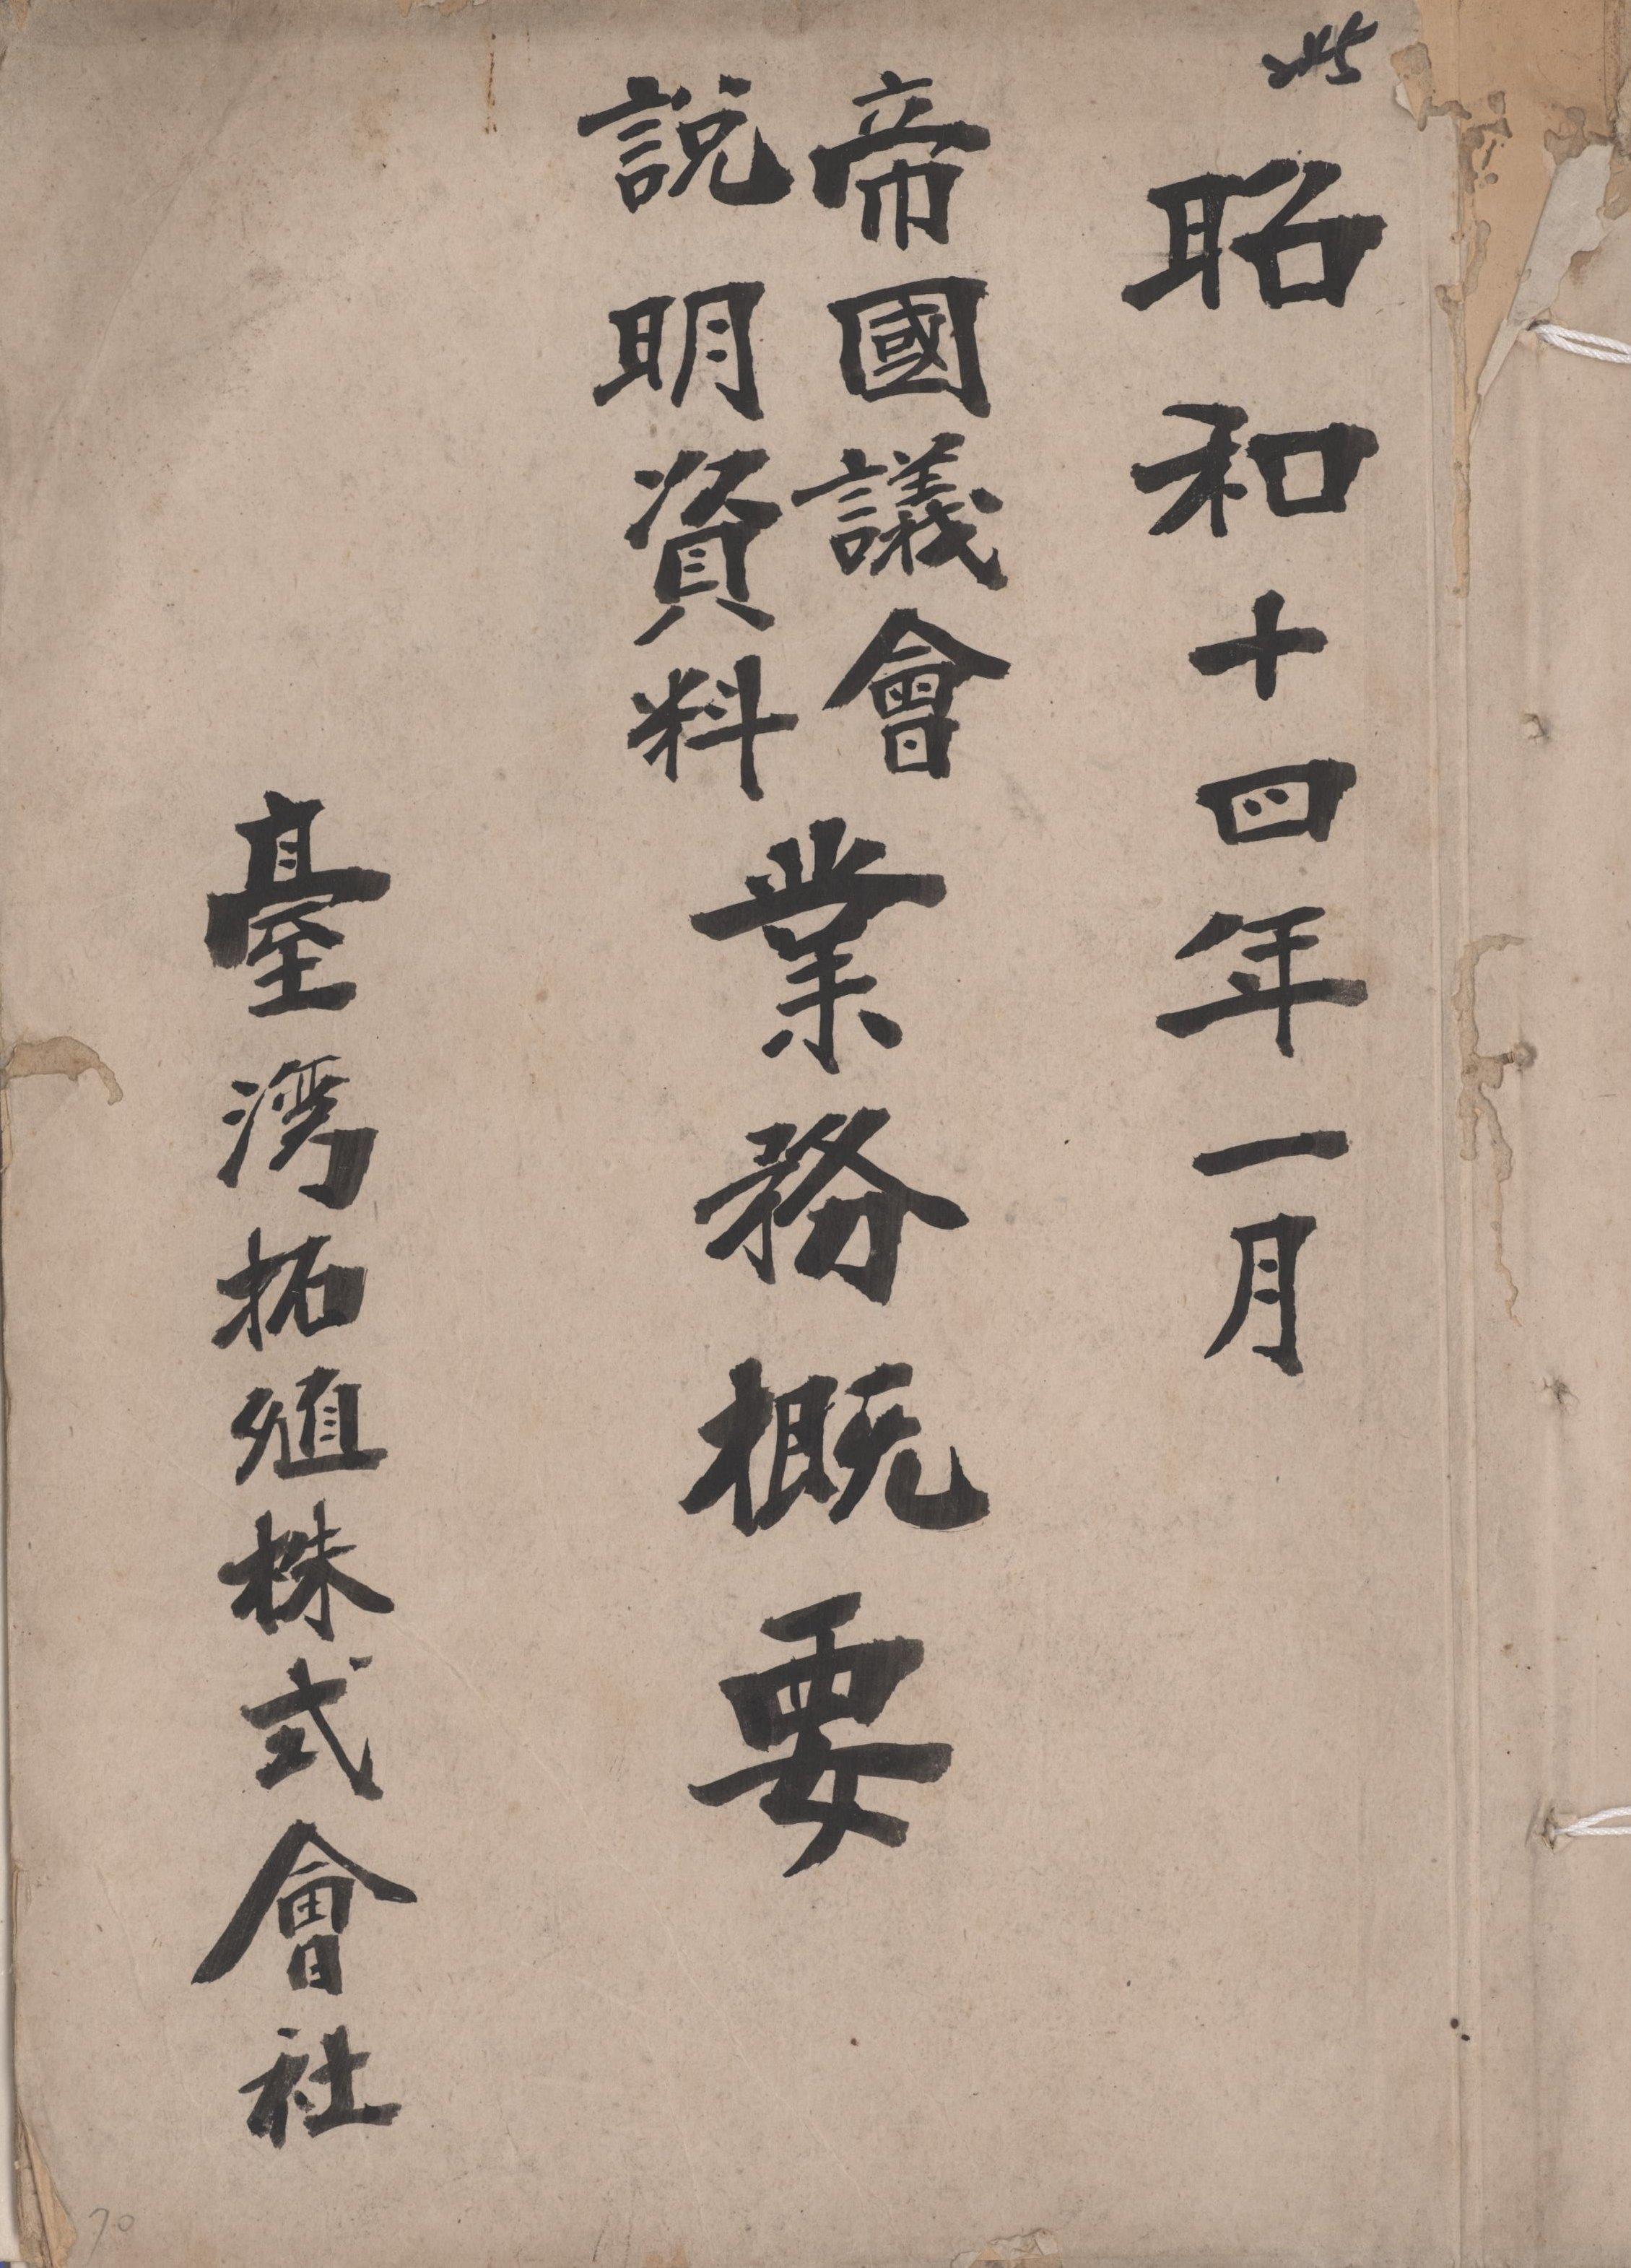 昭和十四年一月
帝國議會
説明資料
業務概要
臺灣拓殖株式會社
70